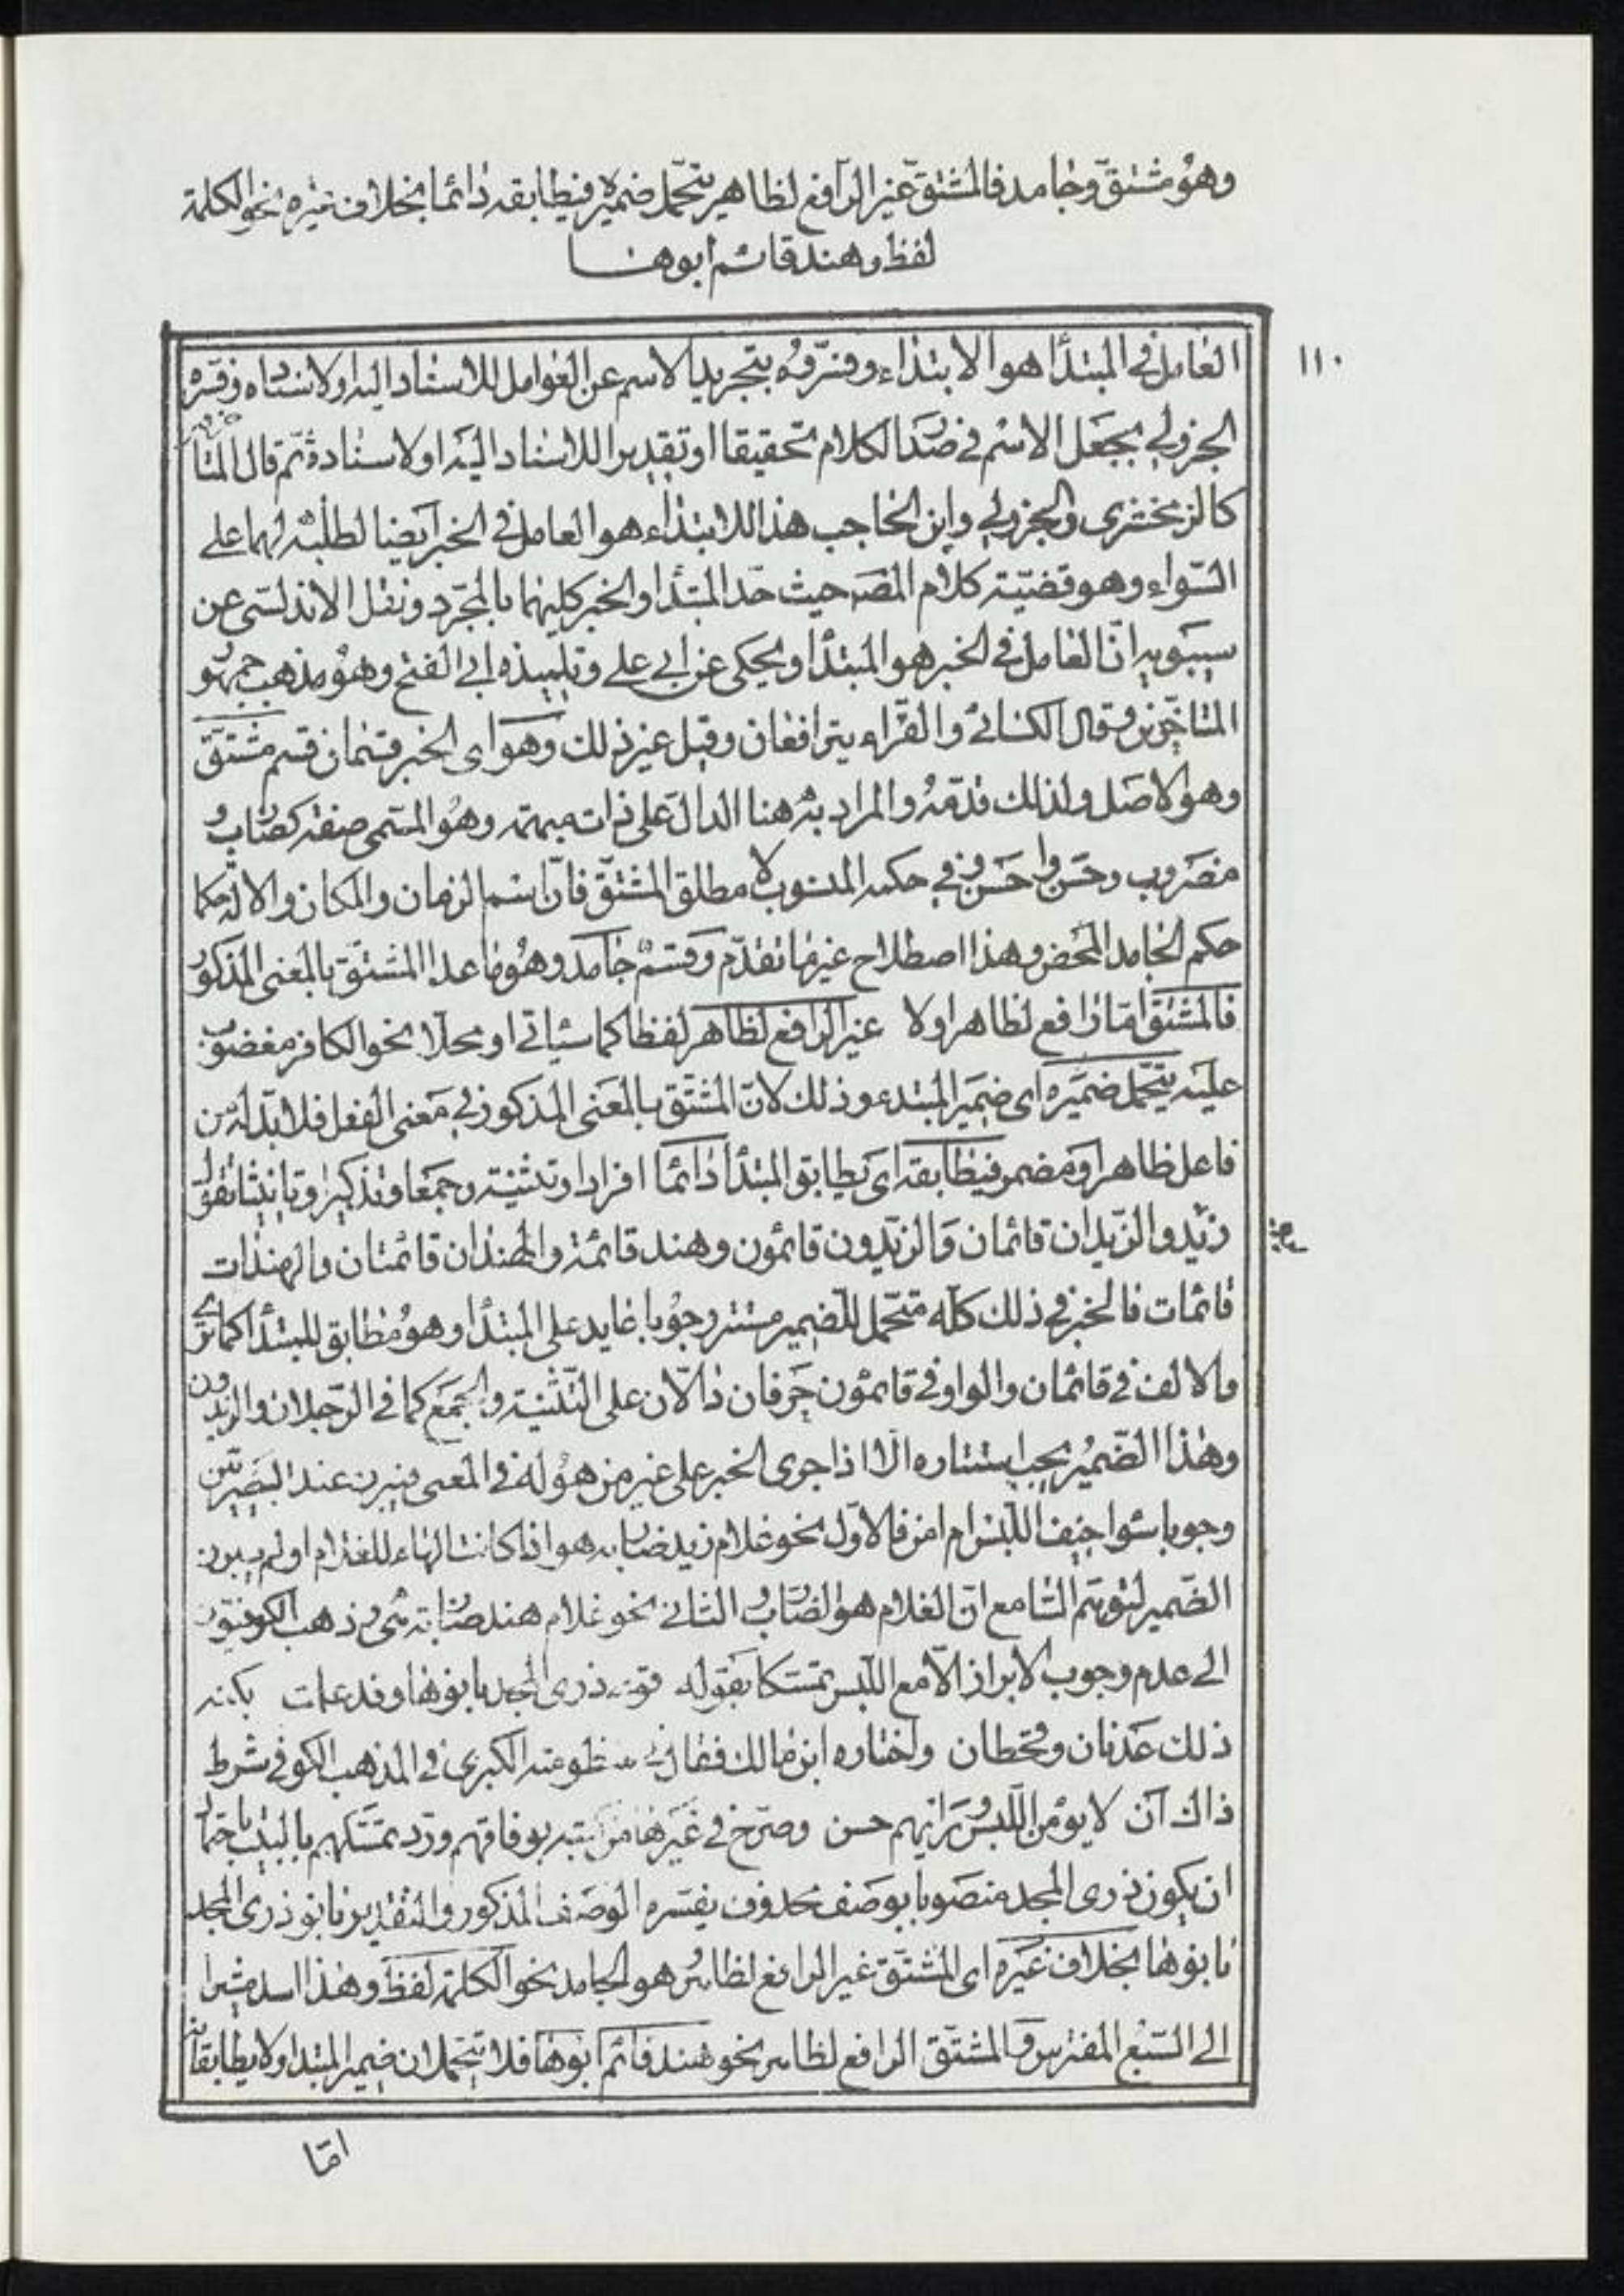 وهو مشتق وجامد فالمشتق غير الرافع لظاهر يتحمل ضميره فيطابقه دائما بخلاف غيره نحو الكلمة
لفظ وهند قائم ابوها
١١٠
العامل في المبتدأ هو الابتداء وفسروه بتجريد الاسم عن العوامل للاسناد اليه او لاسناده وفسره
الجزولي بجعل الاسم في صدر الكلام تحقيقا او تقديرا للاسناد اليه او لاسناده ثم قال المتأخرون
كالزمخشرى والجزولي وابن الحاجب هذا الابتداء هو العامل في الخبر ايضا لطلبه لهما على
السواء وهو قضية كلام المصـ حيث حد المبتدأ والخبر كليهما بالمجرد ونقل الاندلسي عن
سيبويه ان العامل في الخبر هو المبتدأ ويحكى عن ابي علي وتلميذه ابي الفتح وهو مذهب جمهور
المتأخرين وقال الكسائي والفراء يترافعان وقيل غير ذلك وهو اى الخبر قسمان قسم مشتق
وهو الاصل ولذلك قدمه والمراد به هنا الدال على ذات مبهمة وهو المسمى صفة كضارب و
مضروب وحسن واحسن وفي حكمه المنسوب لا مطلق المشتق فان اسم الزمان والمكان والالة حكمها
حكم الجامد المحض وهذا اصطلاح غير ما تقدم وقسم جامد وهو ما عدا المشتق بالمعنى المذكور
فالمشتق اما رافع لظاهر اولا غير الرافع لظاهر لفظا كما سياتي او محلا نحو الكافر مغضوب
عليه يتحمل ضميره اى ضمير المبتدء وذلك لان المشتق بالمعنى المذكور في معنى الفعل فلا بد له من
فاعل ظاهر او مضمر فيطابقه اى يطابق المبتدأ دائما افرادا وتثنية وجمعا وتذكيرا وتانيثا تقول
زيد والزيدان قائمان والزيدون قائمون وهند قائمة والهندان قائمتان والهندات
قائمات فالخبر في ذلك كله متحمل للضمير مستتر وجوبا عايد على المبتدأ وهو مطابق للمبتدأ كما ترى
والالف في قائمان والواو في قائمون حرفان دالان على التثنية والجمع كما في الرجلان والزيدون
وهذا الضمير يجب استتاره الا اذا جرى الخبر على غير من هو له في المعنى فيبرز عند البصريين
وجوبا سواء خيف اللبس ام امن فالاول نحو غلام زيد ضاربه هو اذا كانت الهاء للغلام او لم يبرز
الضمير لتوهم السامع ان الغلام هو الضارب والثاني نحو غلام هند ضاربته هي وذهب الكوفيون
الى عدم وجوب الابراز الا مع اللبس تمسكا بقوله قومى ذرى المجد بانوها وقد علمت بكنه
ذلك عدنان وقحطان واختاره ابن مالك فقال في منظومته الكبرى في المذهب الكوفي شرط
ذاك ان لا يؤمن اللبس ورأيهم حسن وصرح في غيرها من كتبه بوفاقهم ورد تمسكهم بالبيت باحتمال
ان يكون ذرى المجد منصوبا بوصف محذوف يفسره الوصف المذكور والتقدير بانو ذرى المجد
بانوها بخلاف غيره اى المشتق غير الرافع لظاهر هو الجامد نحو الكلمة لفظ وهذا اسد مشيرا
الى السبع المفترس والمشتق الرافع لظاهر نحو هند قائم ابوها فلا يتحملان ضمير المبتدا ولا يطابقانه
اما